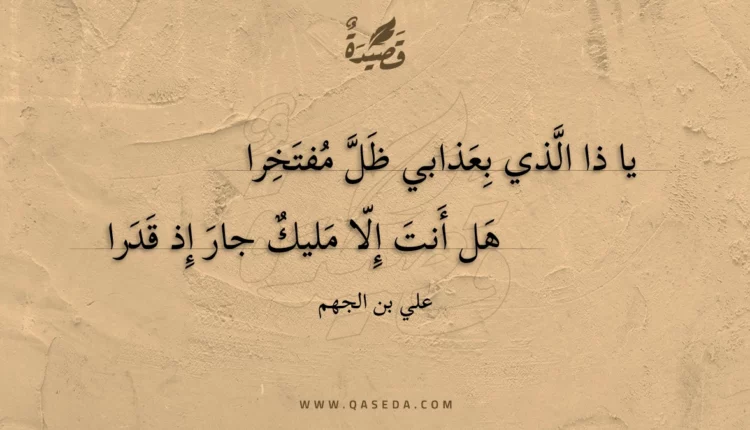 قَصِيْدَةٌ
يا ذا الَّذي بِعَذابي ظَلَّ مُفتَخِرا
هَل أَنتَ إِلّا مَليكٌ جارَ إِذ قَدَرا
علي بن الجهم
WWW.QASEDA.COM